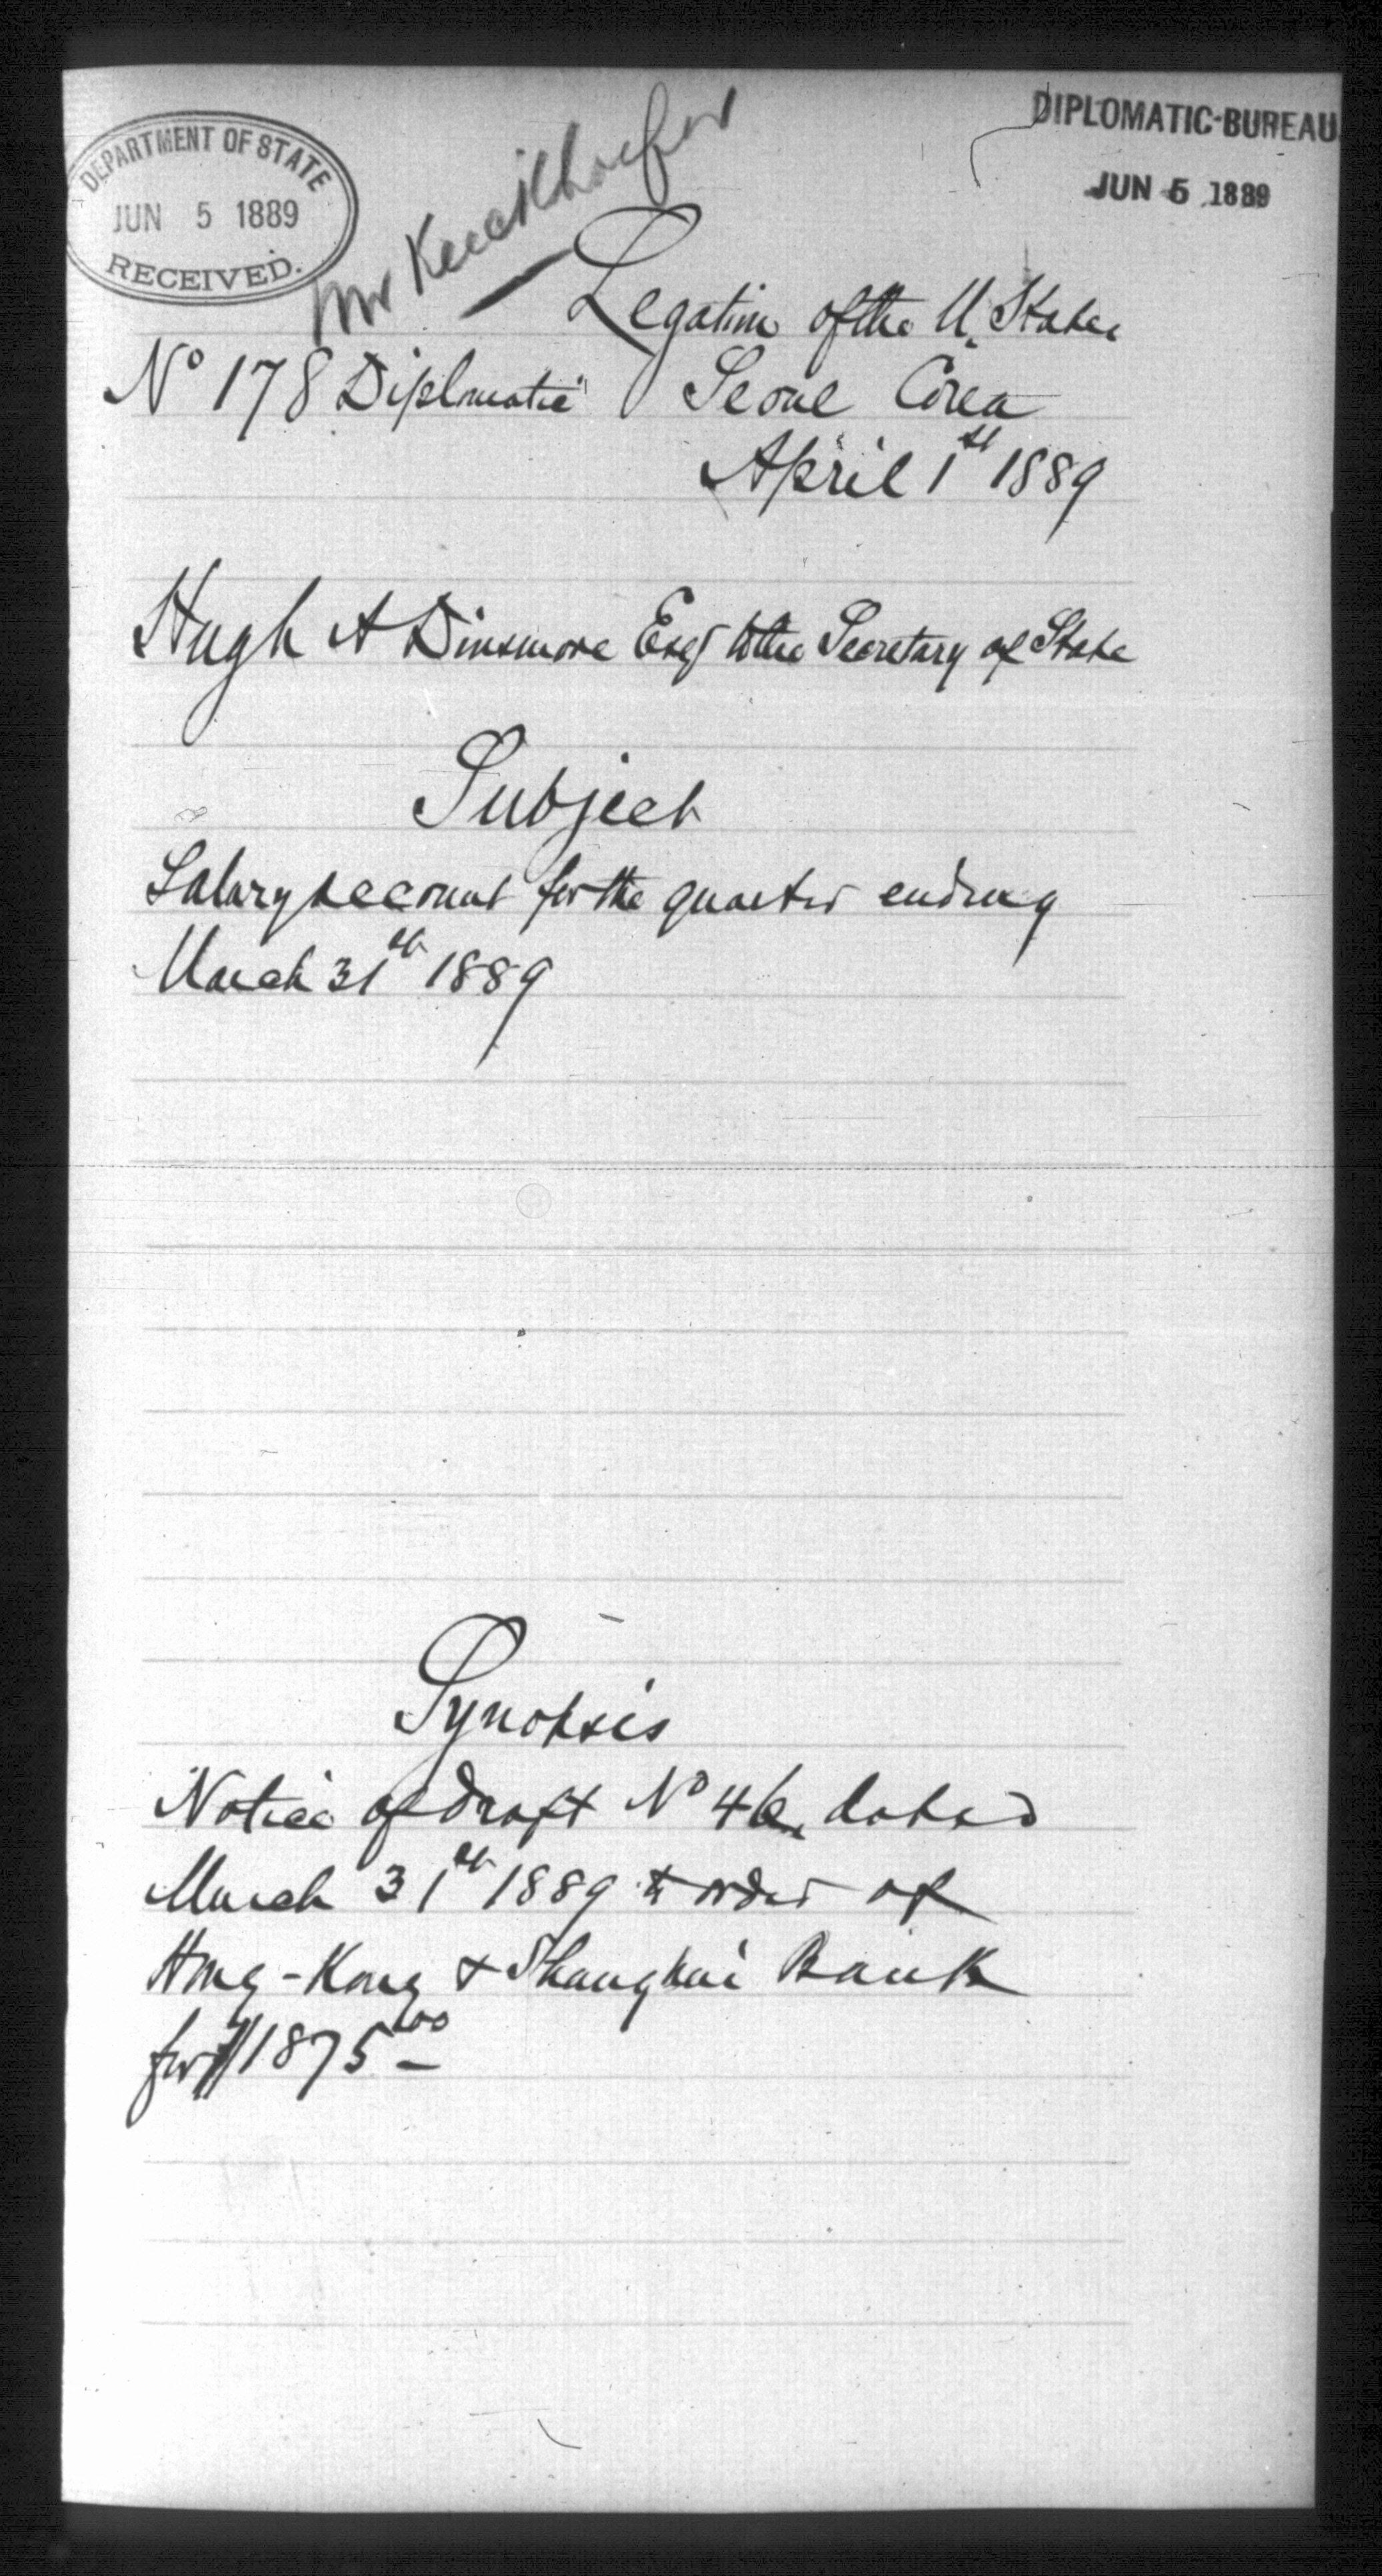 DEPARTMENT OF STATE
JUN 5 1889
RECEIVED.
DIPLOMATIC-BUREAU
JUN 5 1889
Mr
Legation of the U. States
No 178 Diplomatic Seoul Corea
April 1st 1889
Hugh A Dinsmore Esq to the Secretary of State
Subject
Salary account for the quarter ending
March 31st 1889
Synopsis
Notice of draft No 46, dated
March 31st 1889 to order of
Hong-Kong & Shanghai Bank
for $1875.00